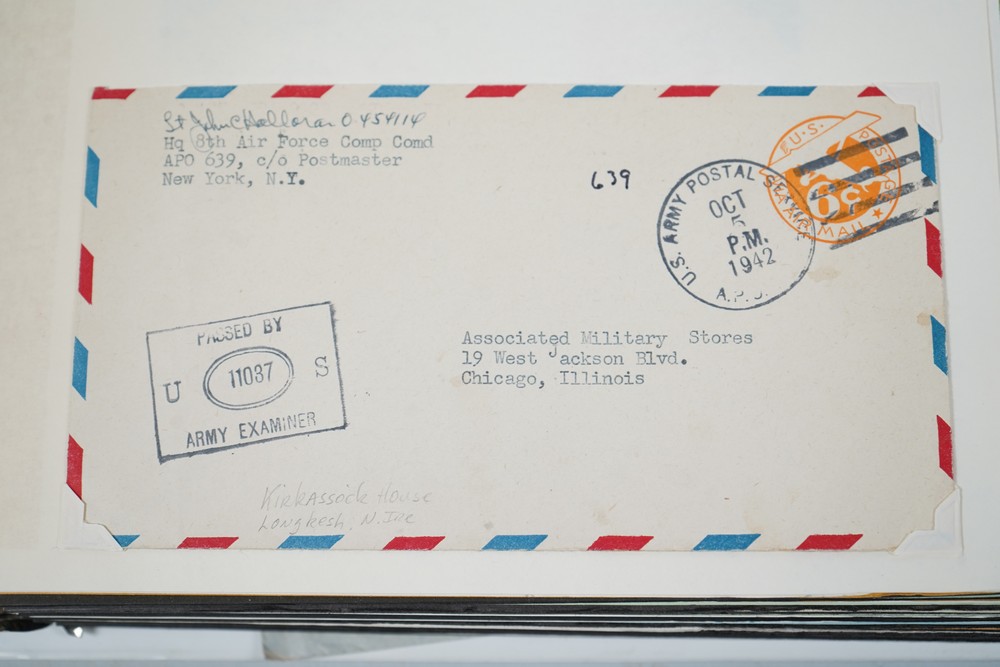 Lt John C Halloran O 454114
Hq 8th Air Force Comp Comd
APO 639, c/o Postmaster
New York, N.Y.
639
U.S. ARMY POSTAL SERVICE
OCT
5
P.M.
1942
A.P.O.
U.S. POSTAGE
6¢
VIA AIR MAIL
PASSED BY
U 11037 S
ARMY EXAMINER
Associated Military Stores
19 West Jackson Blvd.
Chicago, Illinois
Kirkassock House
Longkesh, N. Ire